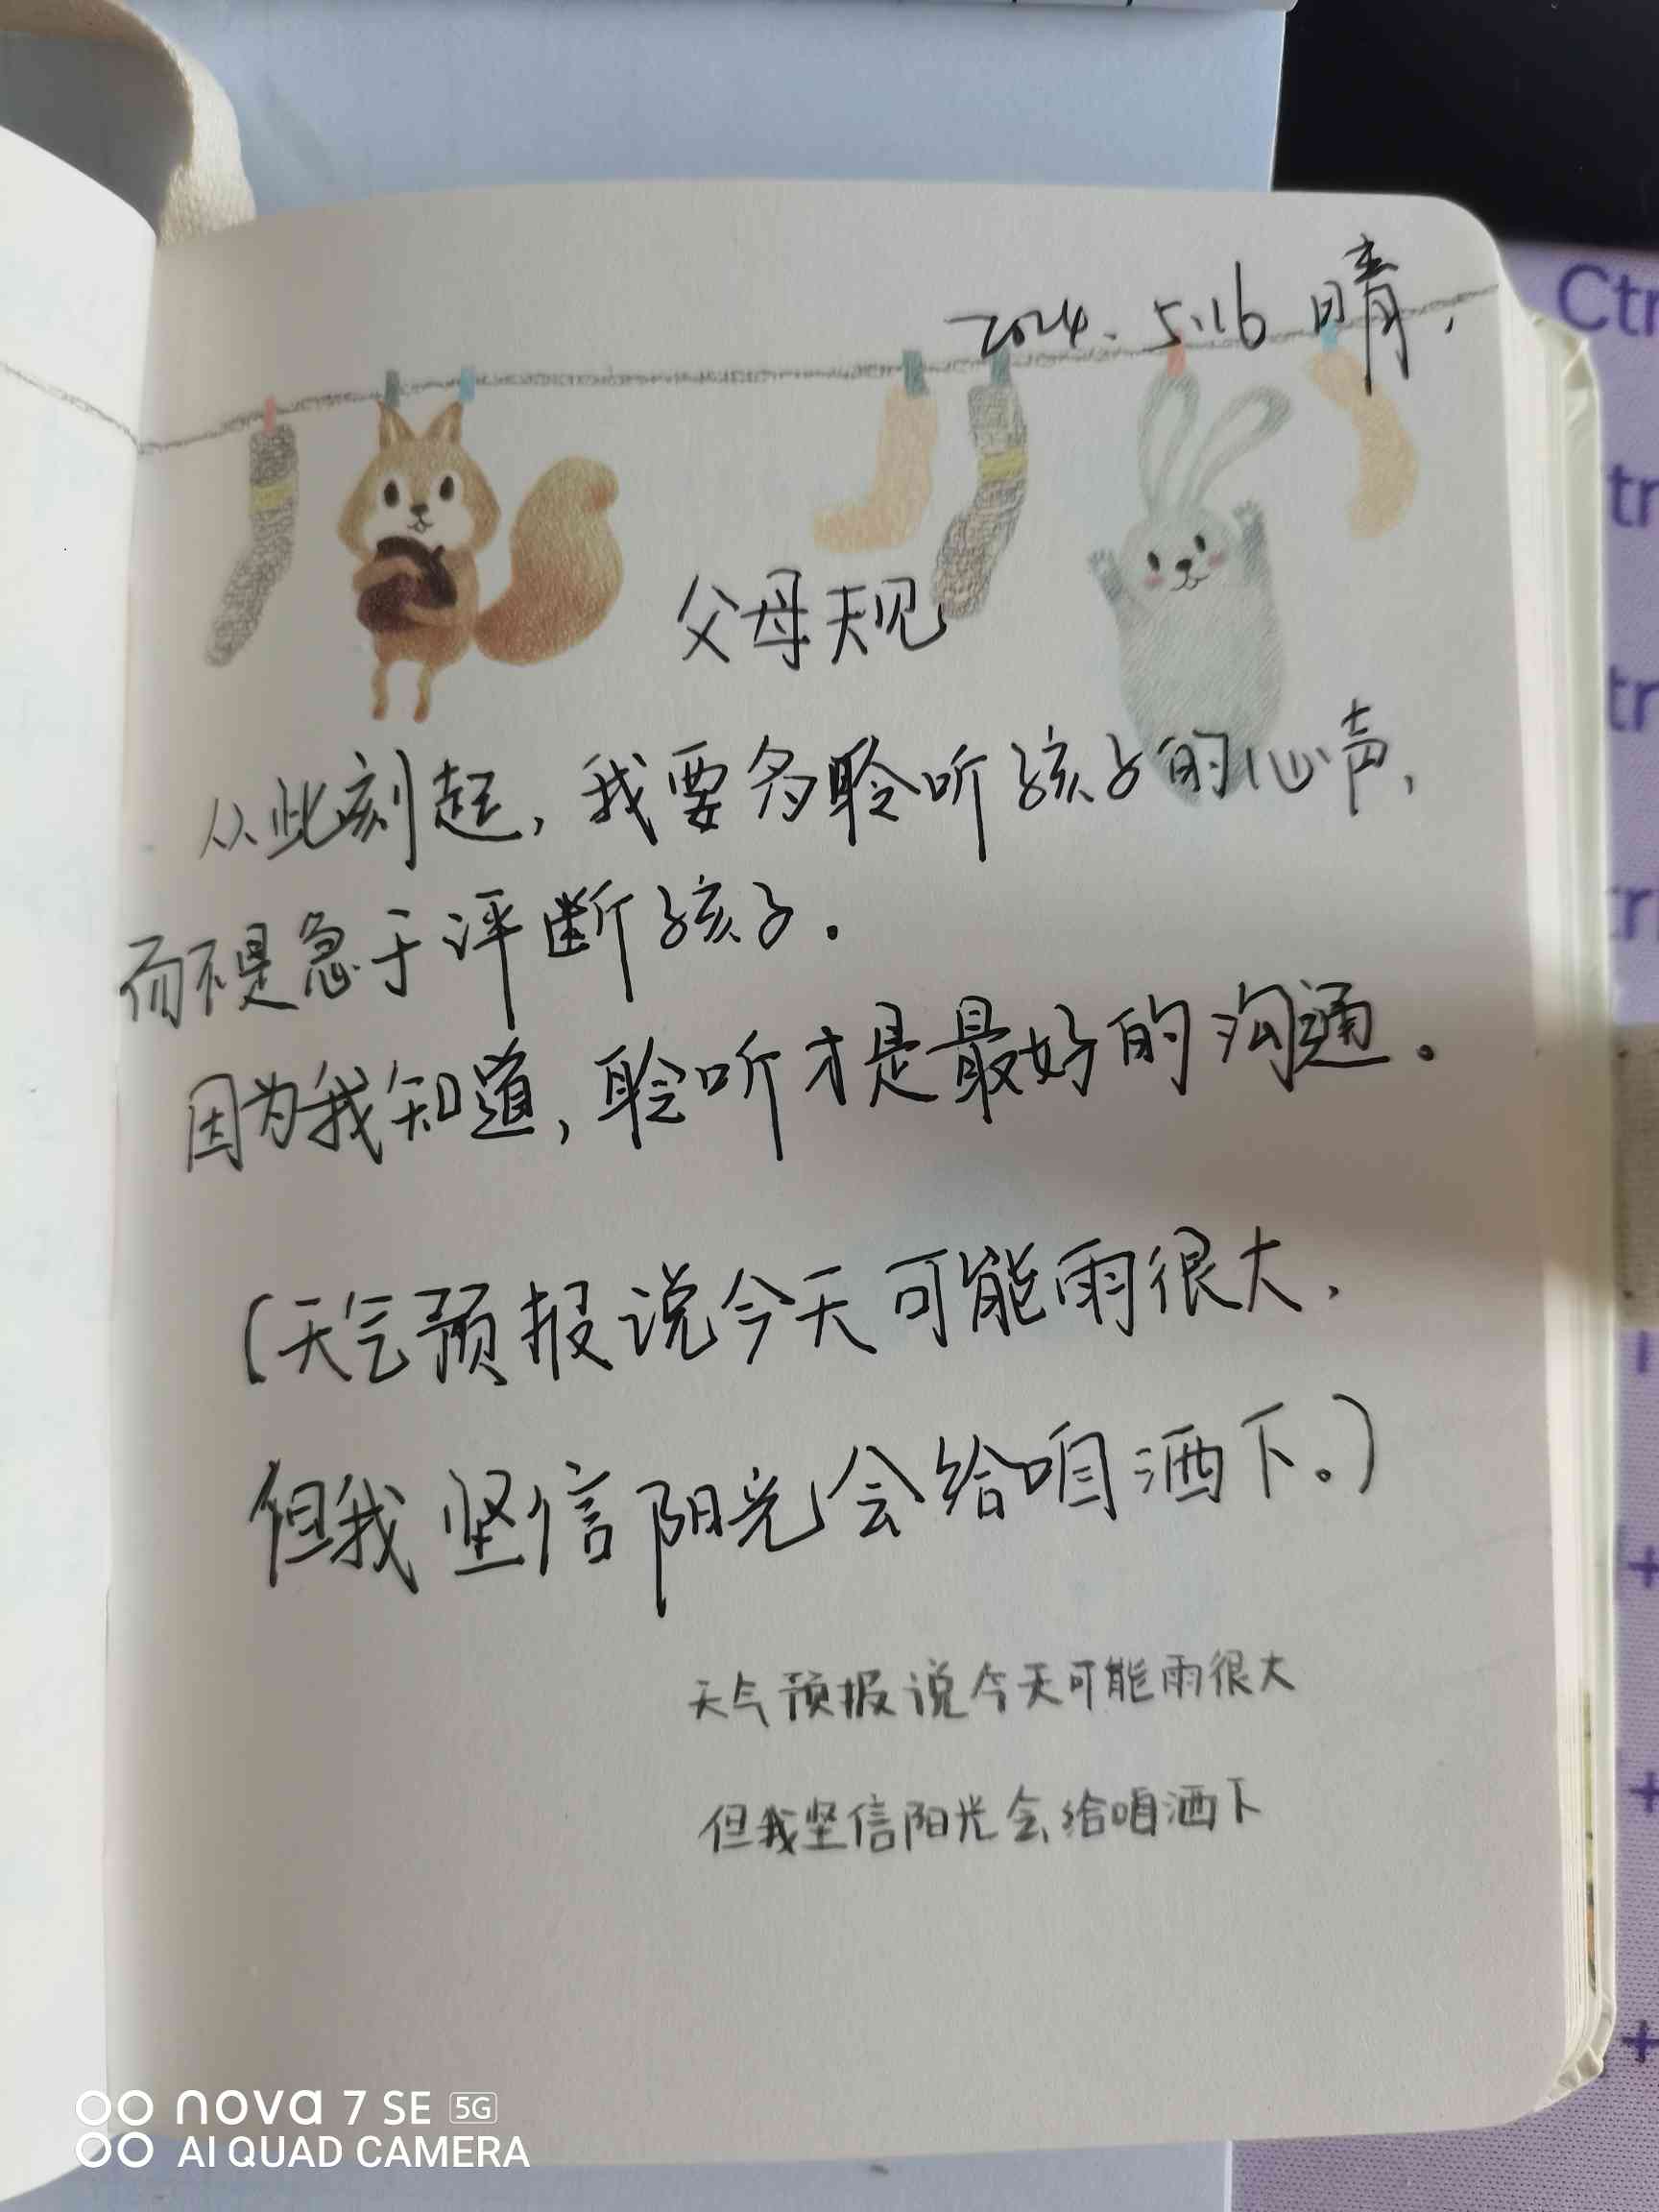 2024.5.16 晴.
父母规
从此刻起,我要多聆听孩子的心声,
而不是急于评断孩子.
因为我知道,聆听才是最好的沟通。
(天气预报说今天可能雨很大,
但我坚信阳光会给咱洒下。)
天气预报说今天可能雨很大
但我坚信阳光会给咱洒下
Ctr
tr
tr
tr
+
+
+
nova 7 SE 5G
AI QUAD CAMERA